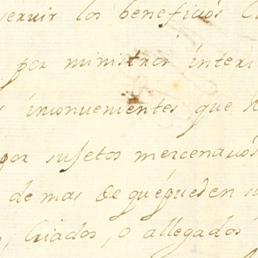 servir los beneficios
por ministros interi
inconvenientes que
por sujetos mercenarios
de mas de qûepueden
Criados, o allegados